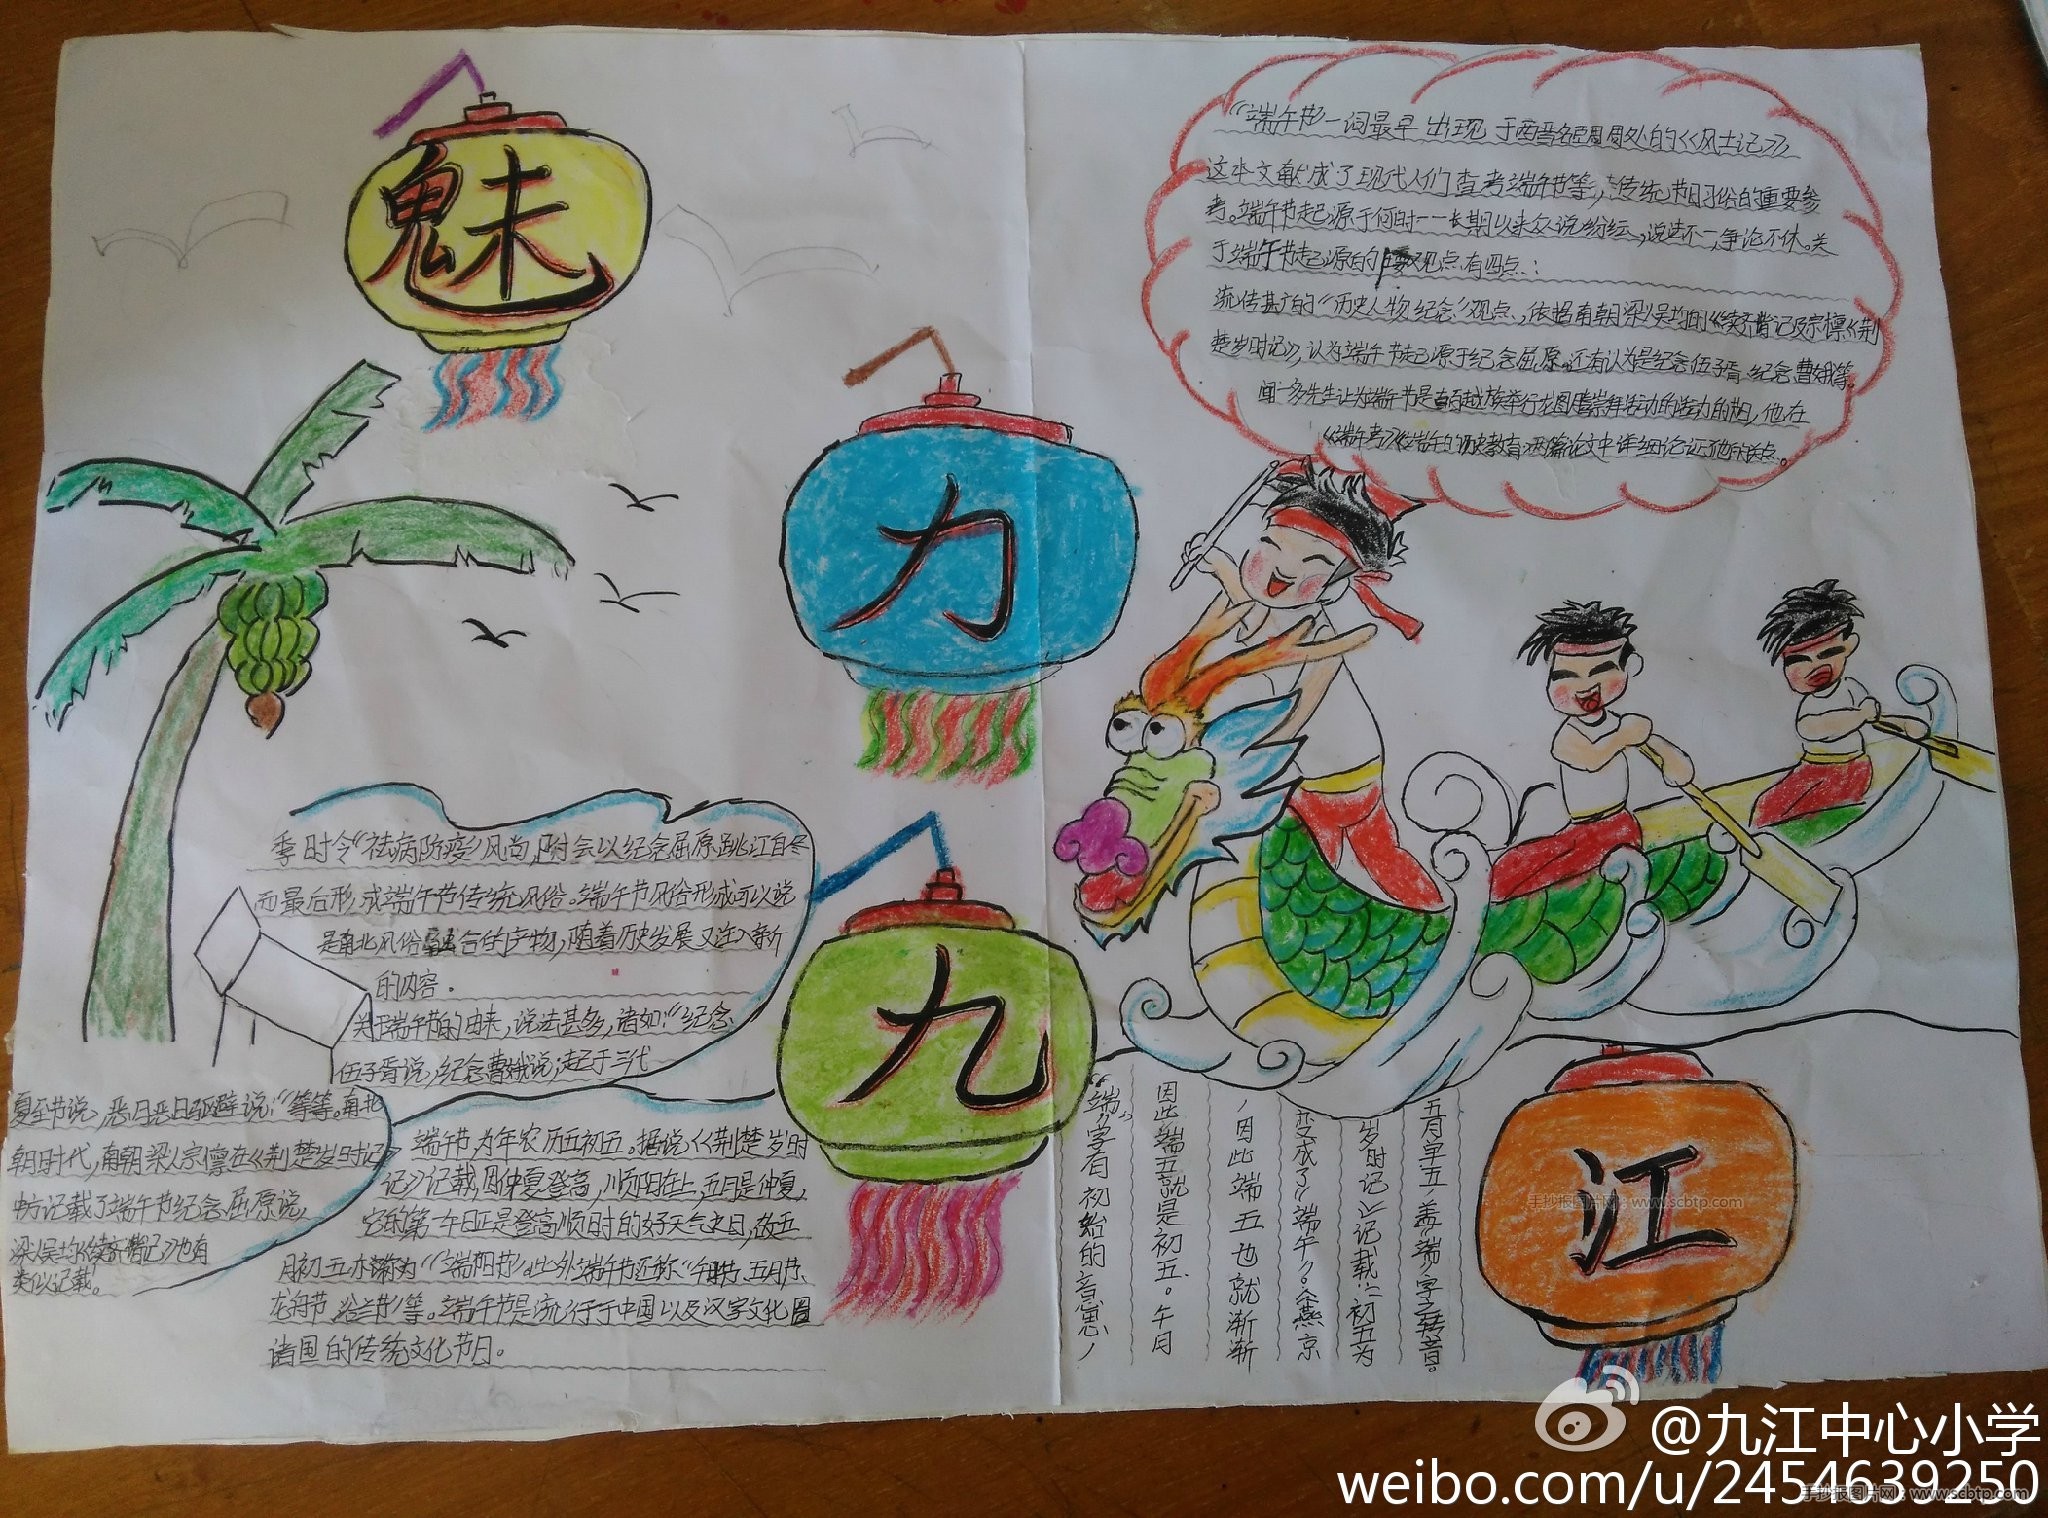 魅
力
九
江
“端午节”一词最早出现于西晋名臣周处的《风土记》，
这本文献成了现代人们查考端午节等传统节日习俗的重要参
考。端午节起源于何时一一长期以来众说纷纭，说法不一，争论不休。关
于端午节起源的主要观点有四点：
流传甚广的“历史人物纪念”观点，依据南朝梁人吴均的《续齐谐记》及宗懔《荆
楚岁时记》，认为端午节起源于纪念屈原。还有认为是纪念伍子胥、纪念曹娥等。
闻一多先生认为端午节是古百越族举行龙图腾崇拜活动的节日，他在
《端午考》《端午的历史教育》两篇论文中详细论证了他的观点。
季时令“祛病防疫”风尚，附会以纪念屈原跳江自尽
而最后形成端午节传统风俗。端午节风俗形成可以说
是南北风俗融合的产物，随着历史发展又注入新
的内容。
关于端午节的由来，说法甚多，诸如：“纪念
伍子胥说，纪念曹娥说；起于三代
夏至节说，恶月恶日驱避说：”等等。南北
朝时代，南朝梁人宗懔在《荆楚岁时记》
中方记载了端午节纪念屈原说，
梁人吴均《续齐谐记》也有
类似记载。
端午节，为年农历五初五。据说《荆楚岁时
记》记载，因仲夏登高，顺阳在上，五月是仲夏，
它的第一午日正是登高顺时的好天气之日，故五
月初五亦称为“端阳节”此外端午节还称“午日节、五月节、
龙舟节、浴兰节”等。端午节是流行于中国以及汉字文化圈
诸国的传统文化节日。
“端”字有“初始的意思，
因此端五就是初五。午月
，因此端五也就渐渐
变成了“端午”。《燕京
岁时记》记载：“初五为
五月单五，盖“端”字之转音。
手抄报图片网：www.scbtp.com
@九江中心小学
weibo.com/u/2454639250
手抄报图片网：www.scbtp.com